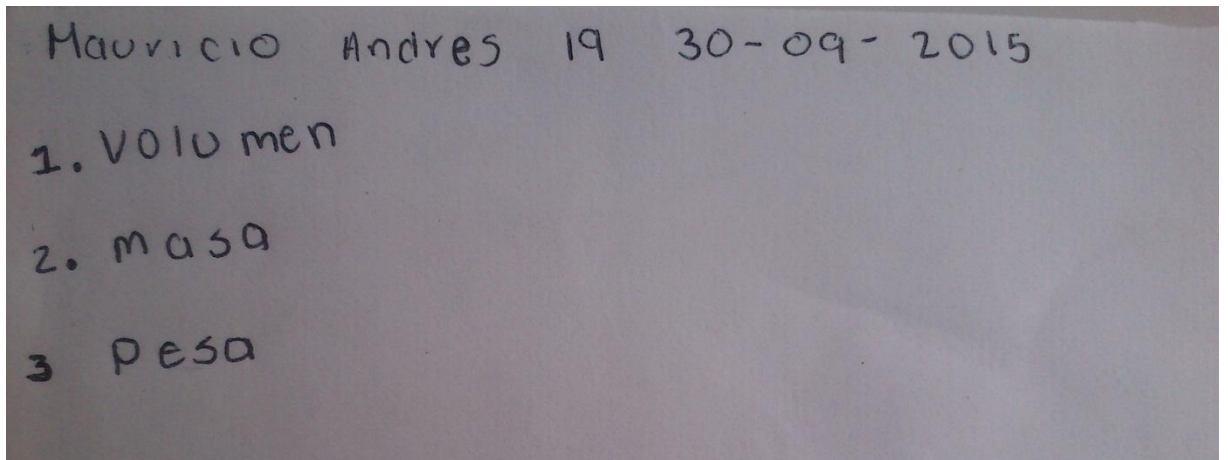 Mauricio Andres 19 30-09-2015
1. Volumen
2. masa
3 pesa